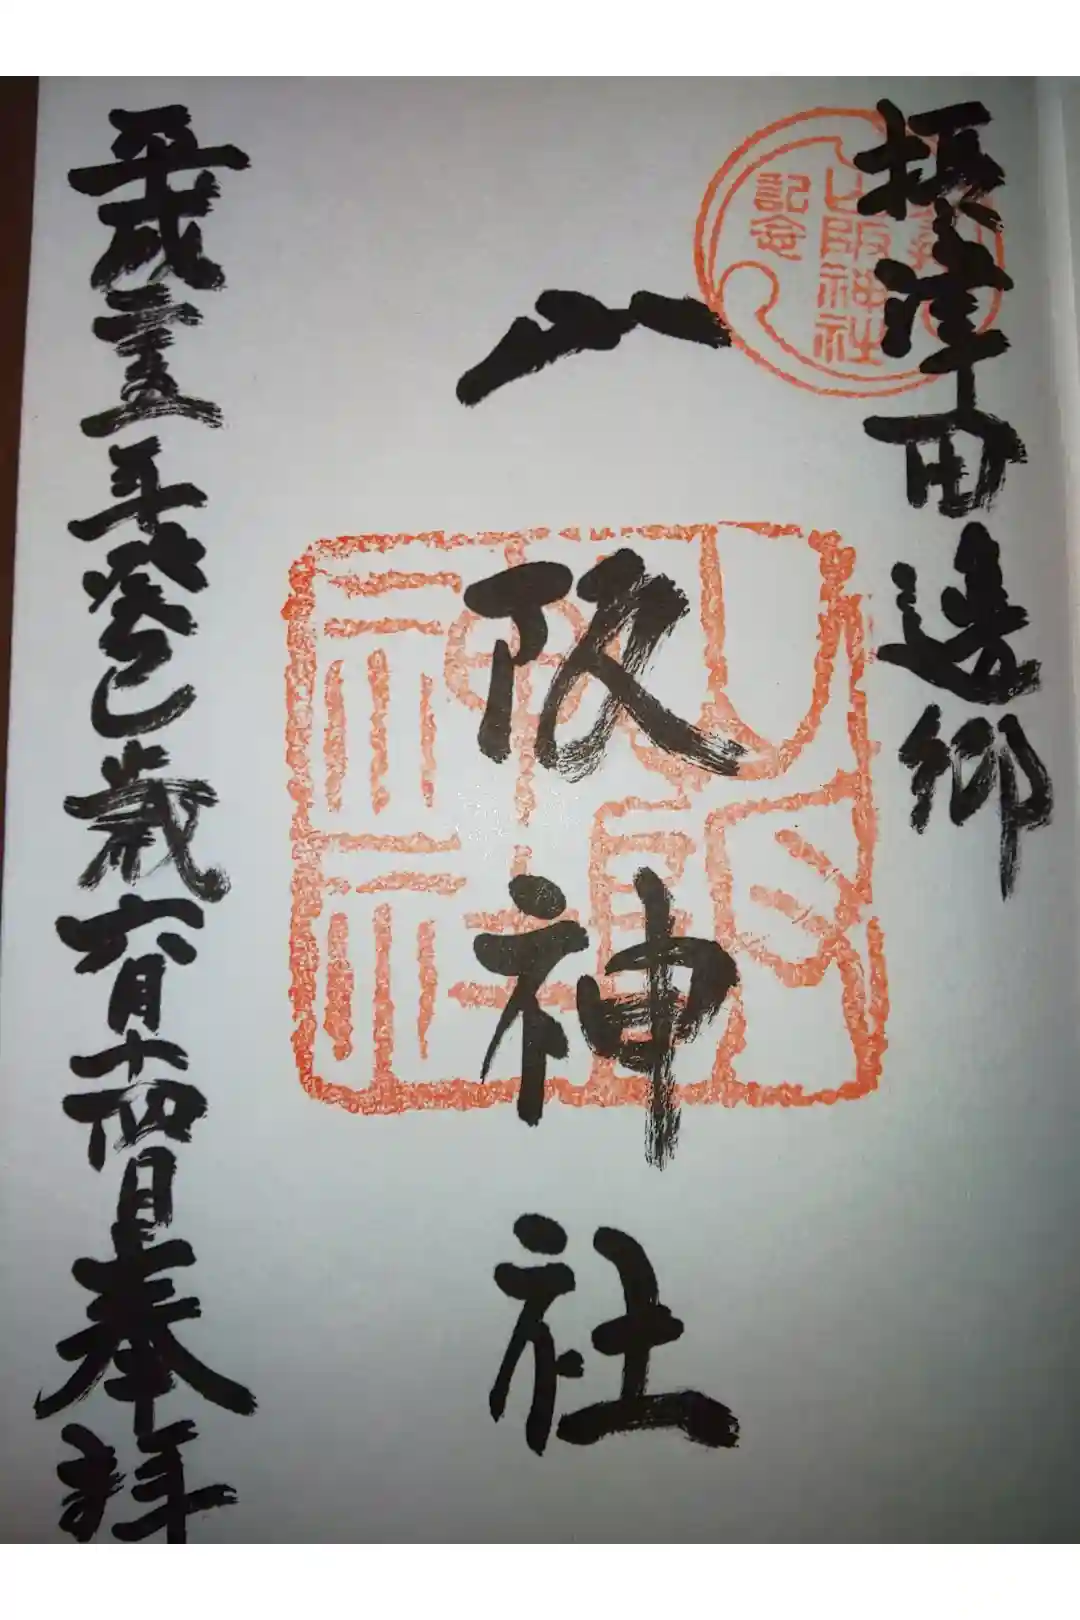 摂津田邊郷
八阪神社
平成二十五年癸巳歳六月十四日奉拝
八阪神社
記念
八阪神社